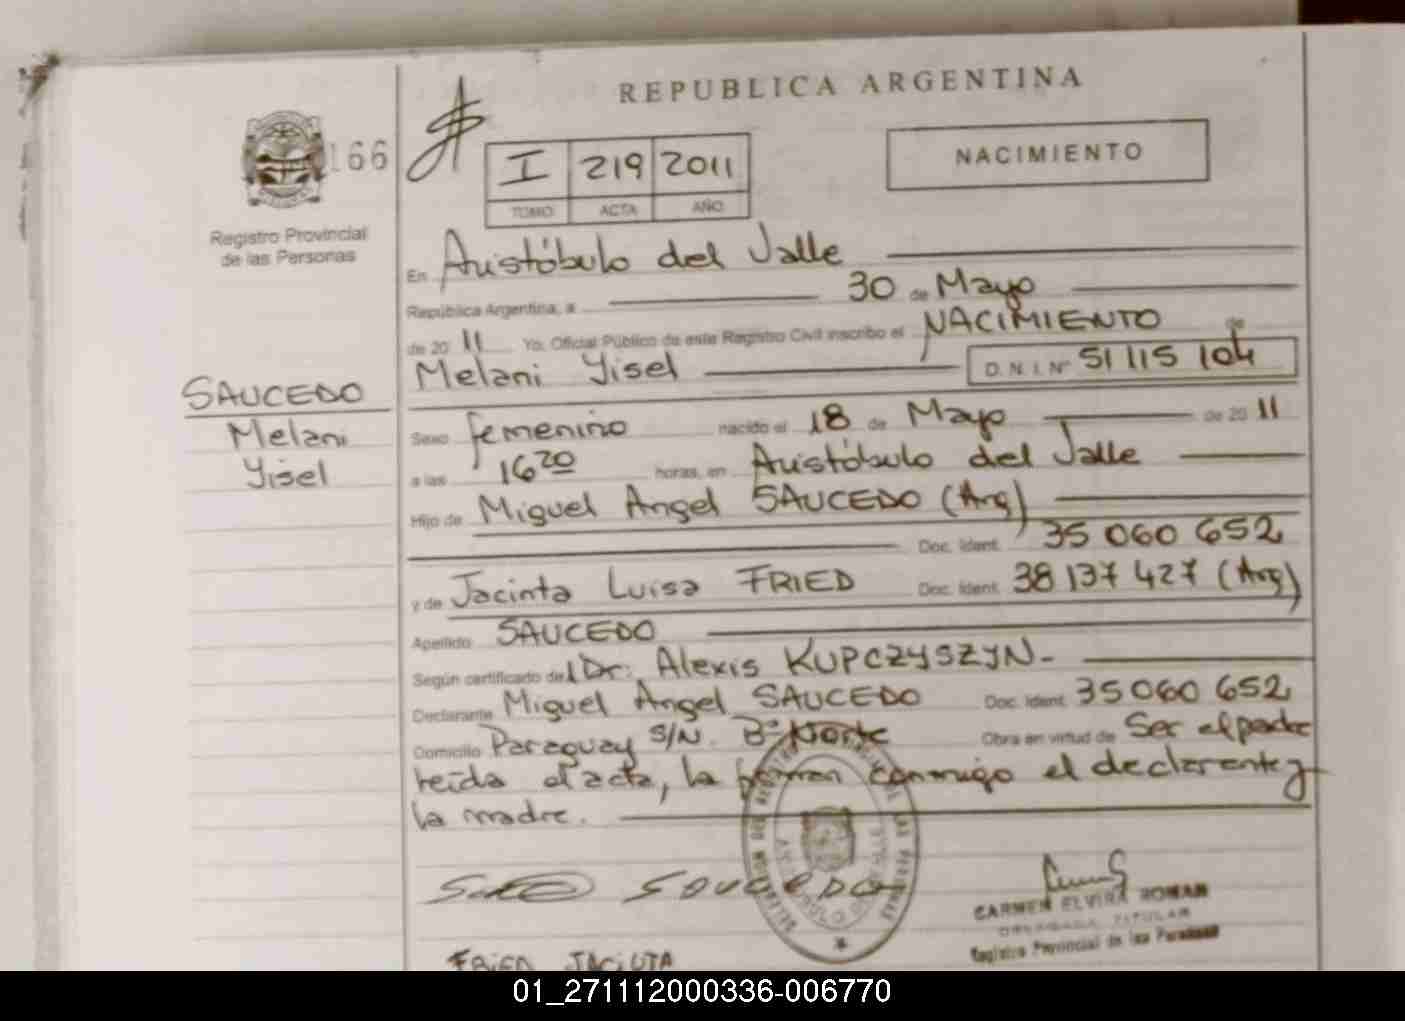 REPUBLICA ARGENTINA
166
I 219 2011
TOMO ACTA AÑO
NACIMIENTO
Registro Provincial
de las Personas
En Aristóbulo del Valle
República Argentina, a 30 de Mayo
de 2011 Yo, Oficial Público de este Registro Civil inscribo el NACIMIENTO de
Melani Yisel D. N. I. Nº 51 115 104
SAUCEDO
Melani
Yisel
Sexo femenino nacido el 18 de Mayo de 2011
a las 16 20 horas, en Aristóbulo del Valle
Hijo de Miguel Angel SAUCEDO (Arg)
Doc. Ident. 35 060 652
y de Jacinta Luisa FRIED Doc. Ident. 38 137 427 (Arg)
Apellido SAUCEDO
Según certificado del Dr. Alexis KUPCZYSZYN.-
Declarante Miguel Angel SAUCEDO Doc. Ident. 35 060 652
Domicilio Paraguay S/N. Bº Norte Obra en virtud de Ser el padre
leída el acta, la firman conmigo el declarante y
la madre.
SAUCEDO
CARMEN ELVIRA ROMAN
DELEGADA TITULAR
Registro Provincial de las Personas
FRIED JACINTA
01_271112000336-006770